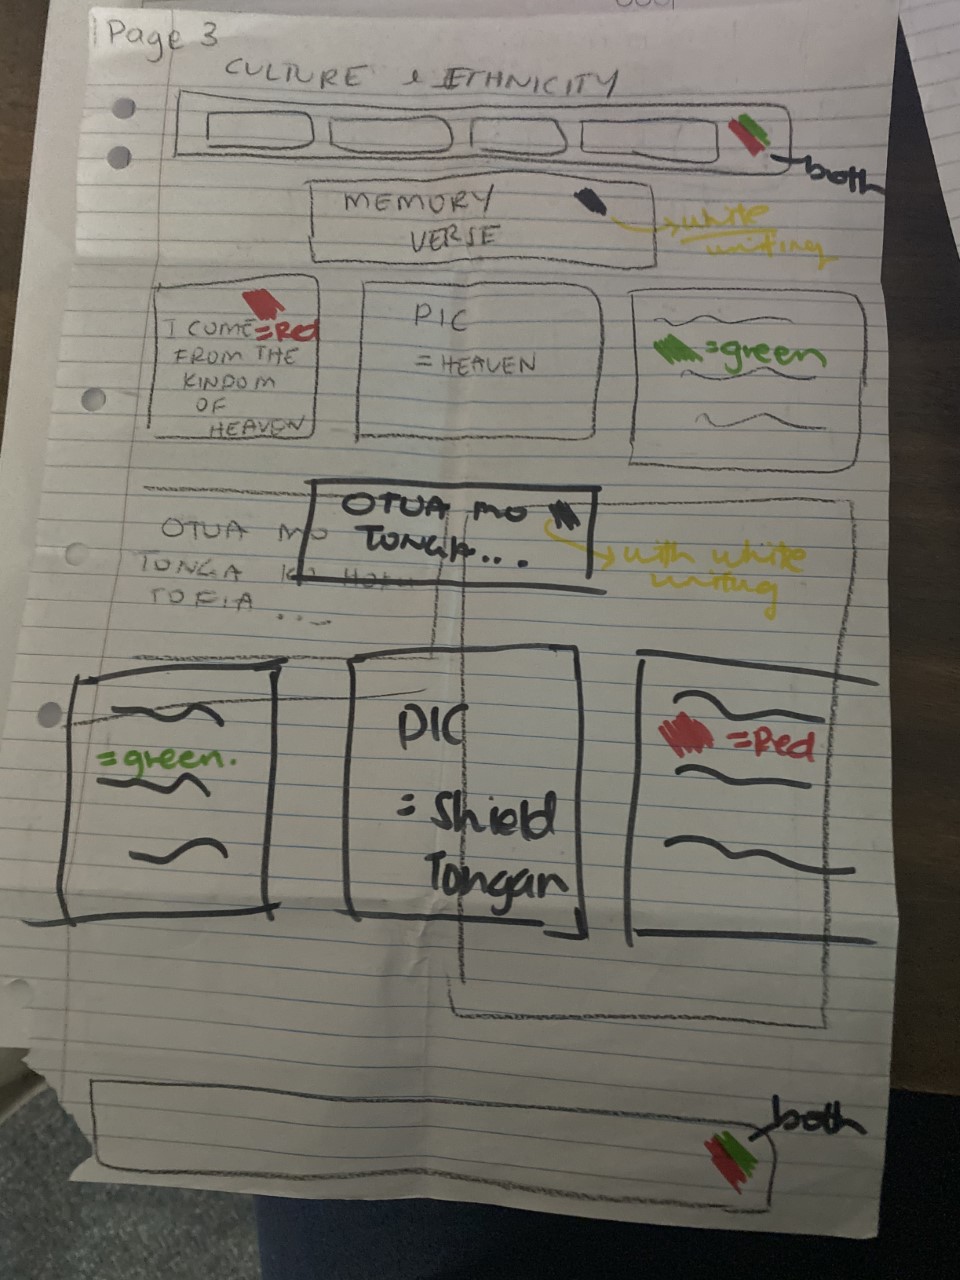 Page 3
CULTURE & ETHNICITY
both
MEMORY
VERSE
white
writing
I COME =Red
FROM THE
KINDOM
OF
HEAVEN
PIC
= HEAVEN
=green
OTUA MO
TONGA...
with white
writing
OTUA MO
TONGA KO HOKU
TOFIA
...
=green.
PIC
= Shield
Tongan
=Red
both